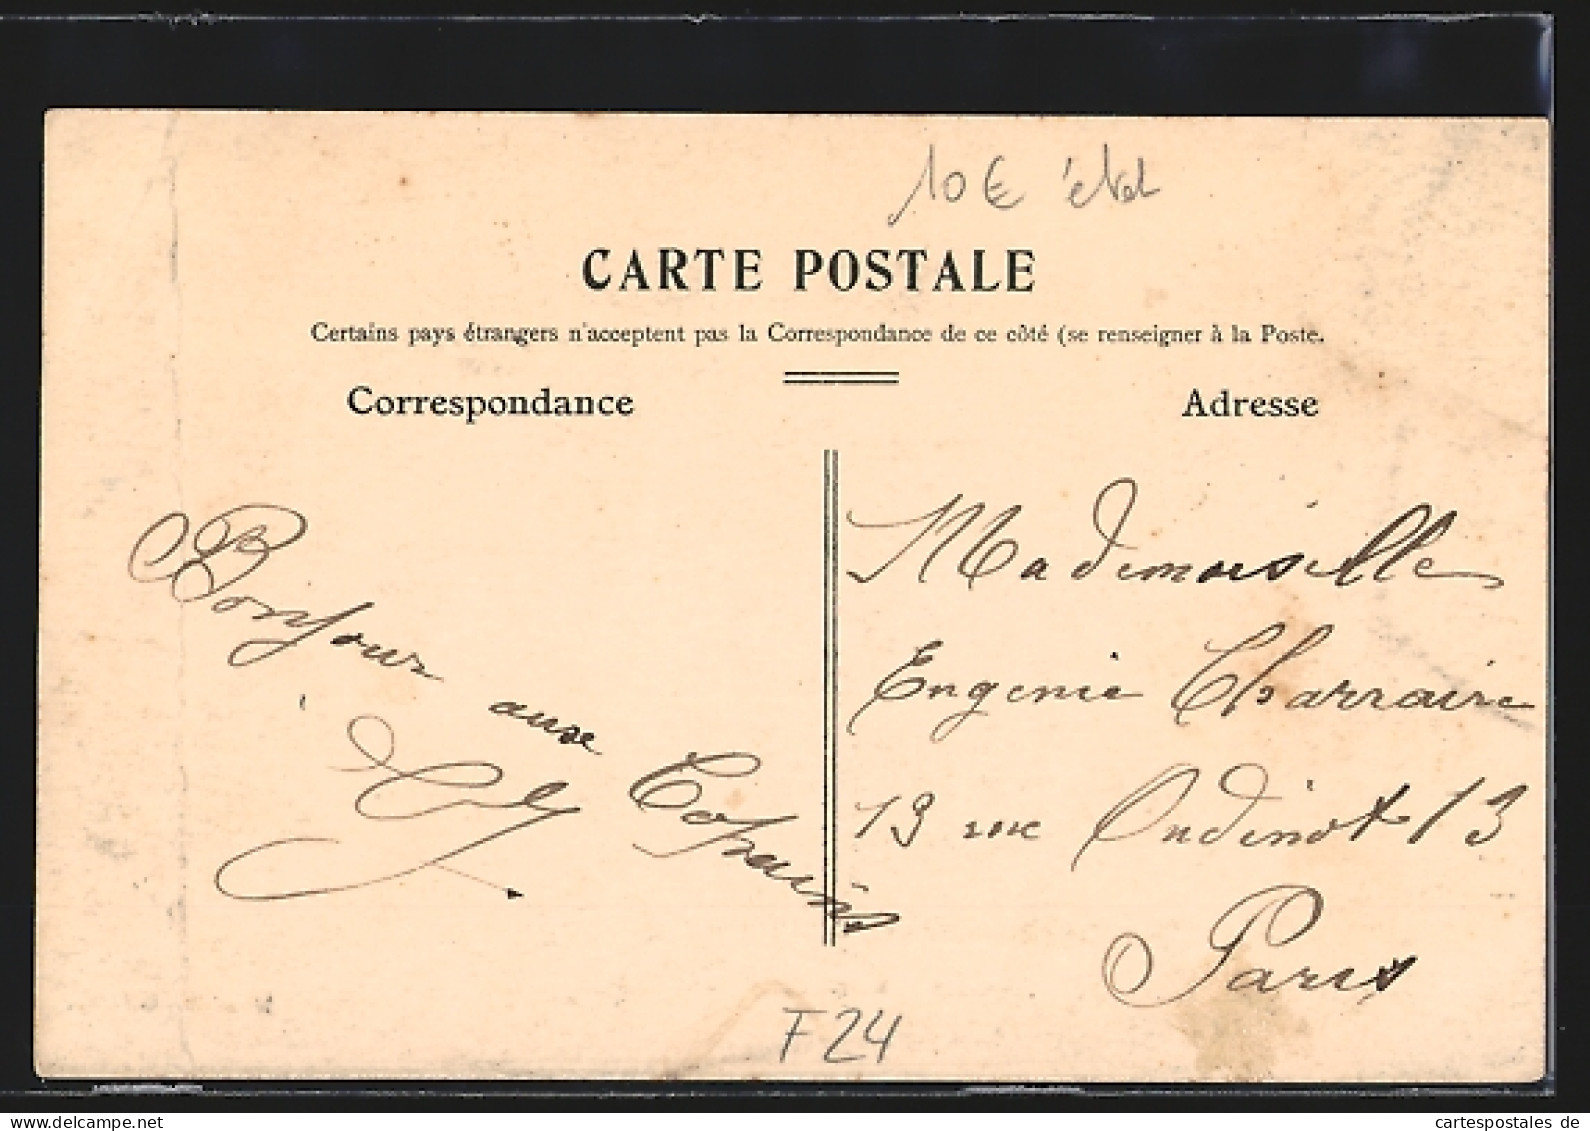 10€ état
CARTE POSTALE
Certains pays étrangers n'acceptent pas la Correspondance de ce côté (se renseigner à la Poste.
Correspondance
Adresse
Bonjour aux Copains
Mademoiselle
Eugenie Charraire
13 rue Oudinot 13
Paris
F24
cartespostales de